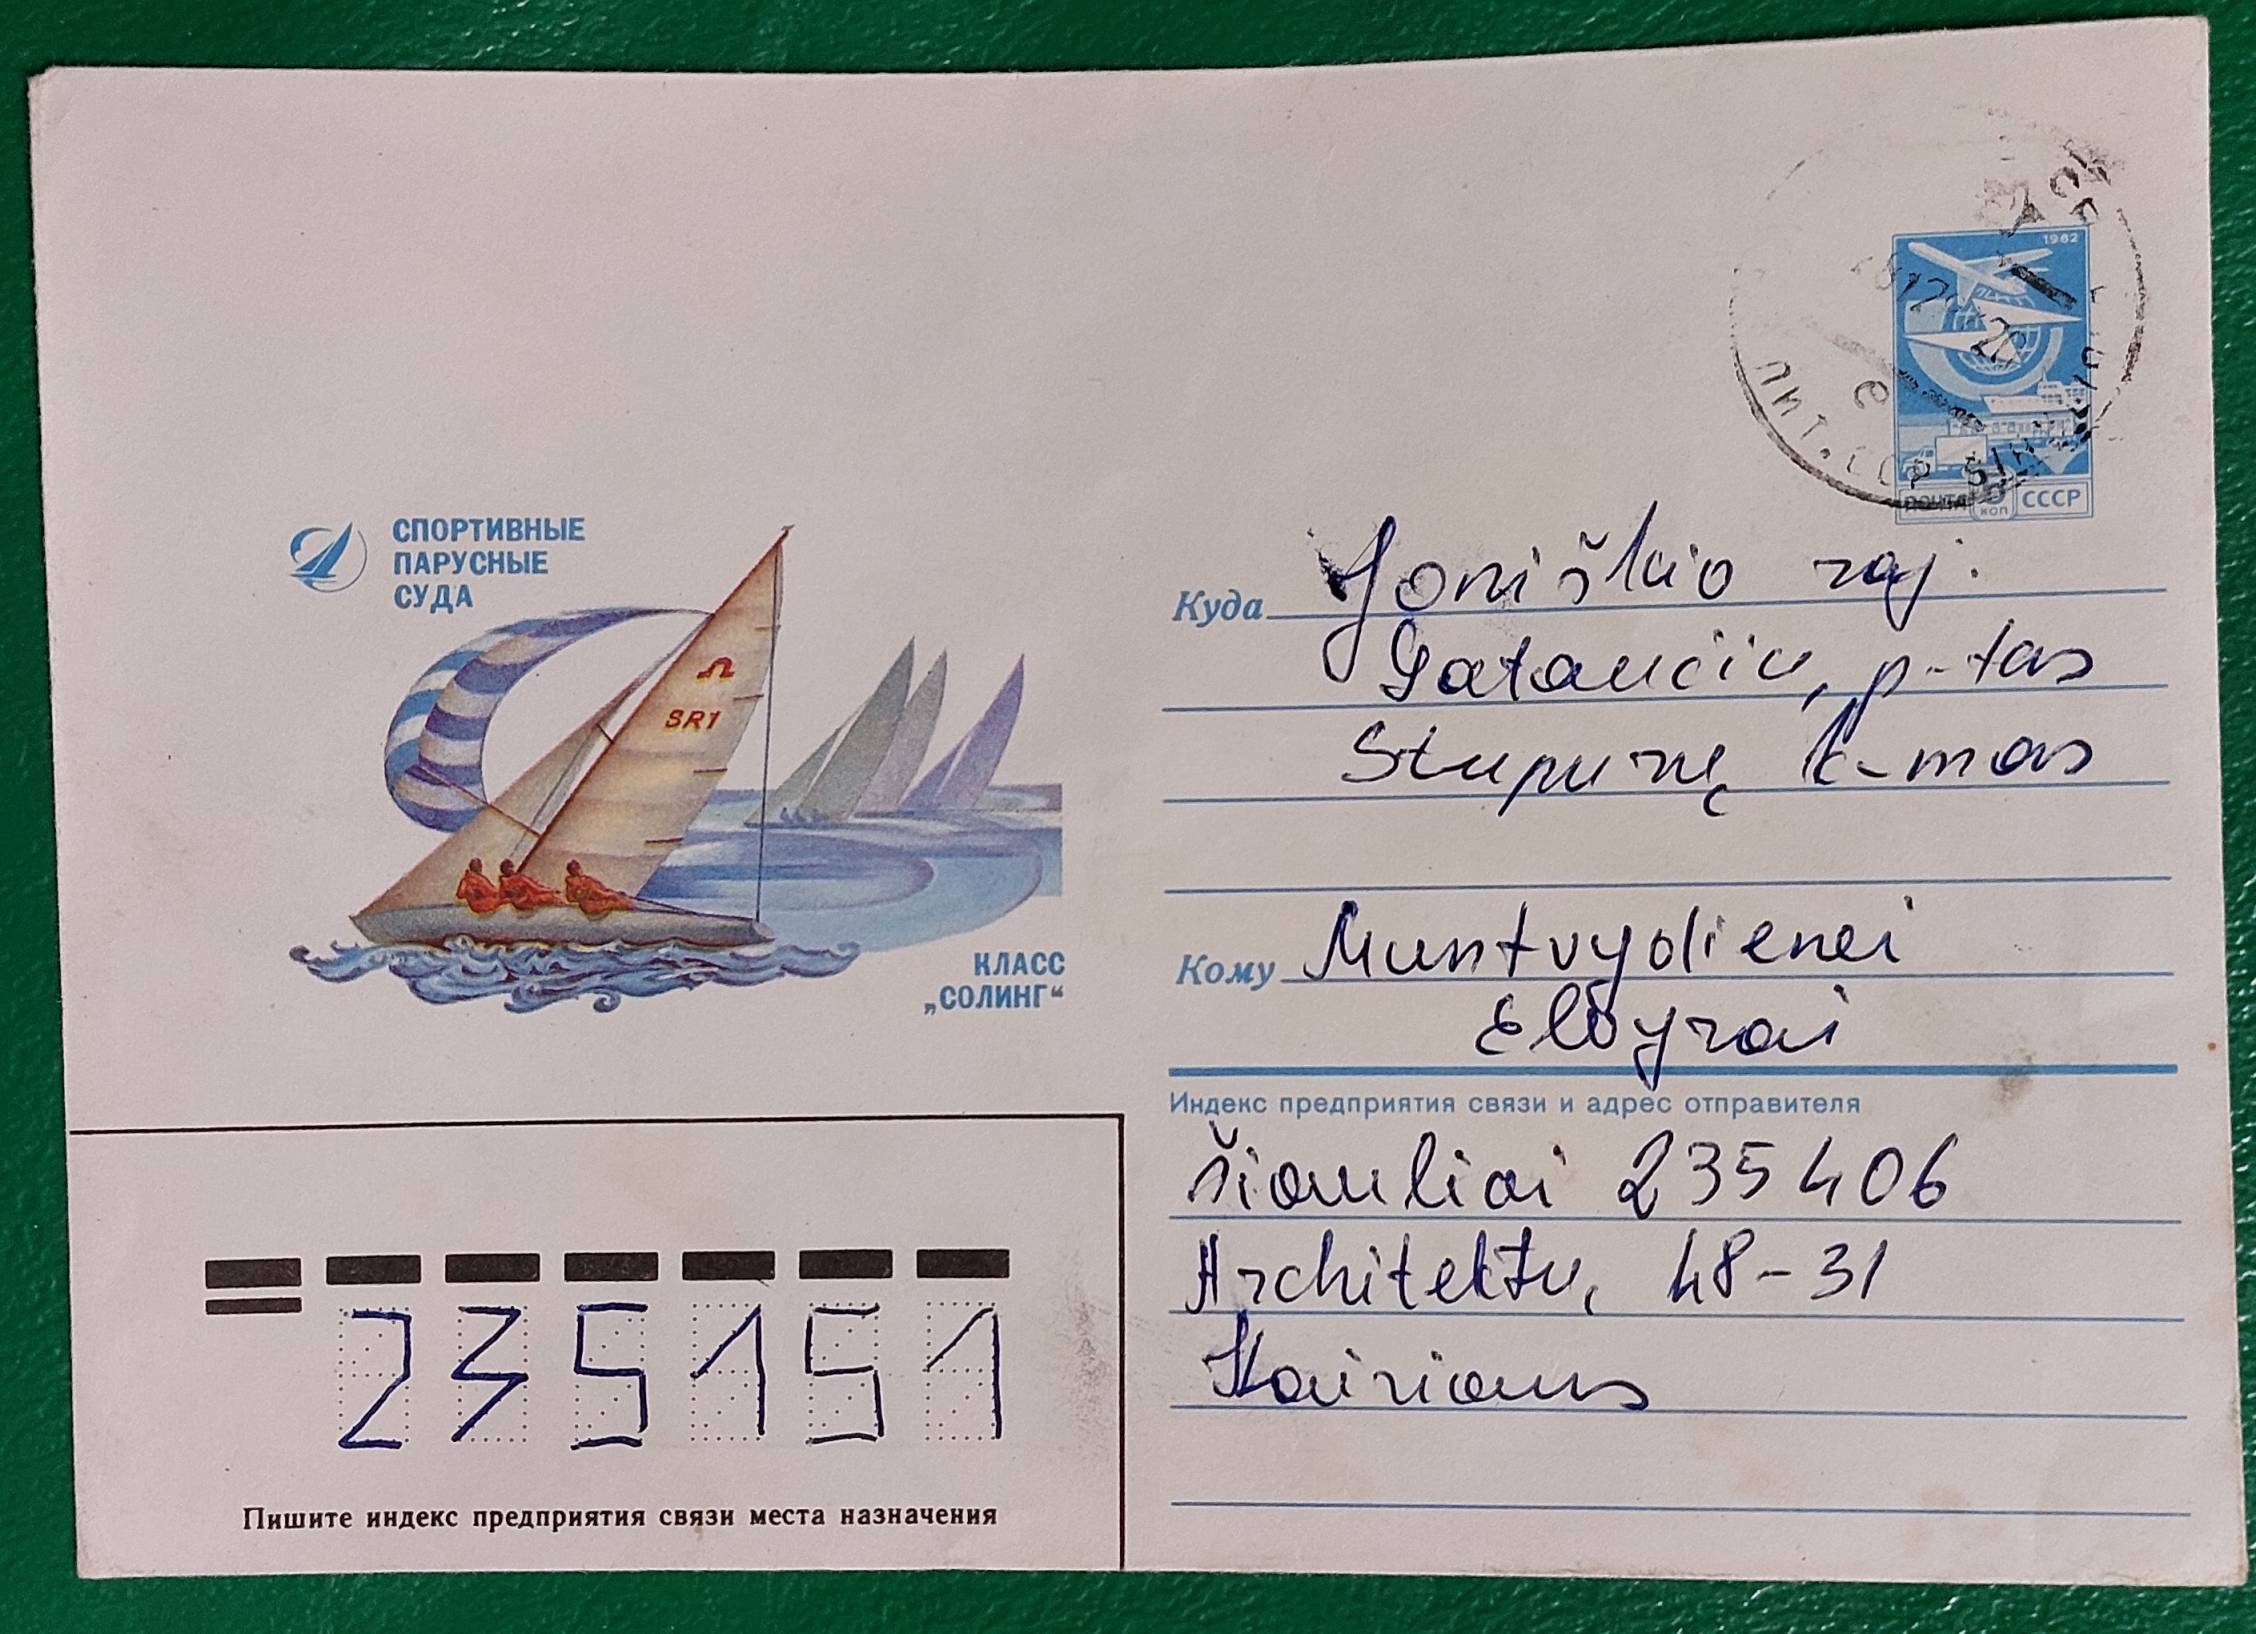 СПОРТИВНЫЕ
ПАРУСНЫЕ
СУДА
SR1
КЛАСС
„СОЛИНГ“
1982
ПОЧТА 5 КОП СССР
ЛИТ. ССР
Куда Joniškio raj.
Gataučių p-tas
Stupurų k-mas
Кому Muntvydienei
Elvyrai
Индекс предприятия связи и адрес отправителя
Šiauliai 235406
Architektų 48-31
Kairiams
235151
Пишите индекс предприятия связи места назначения